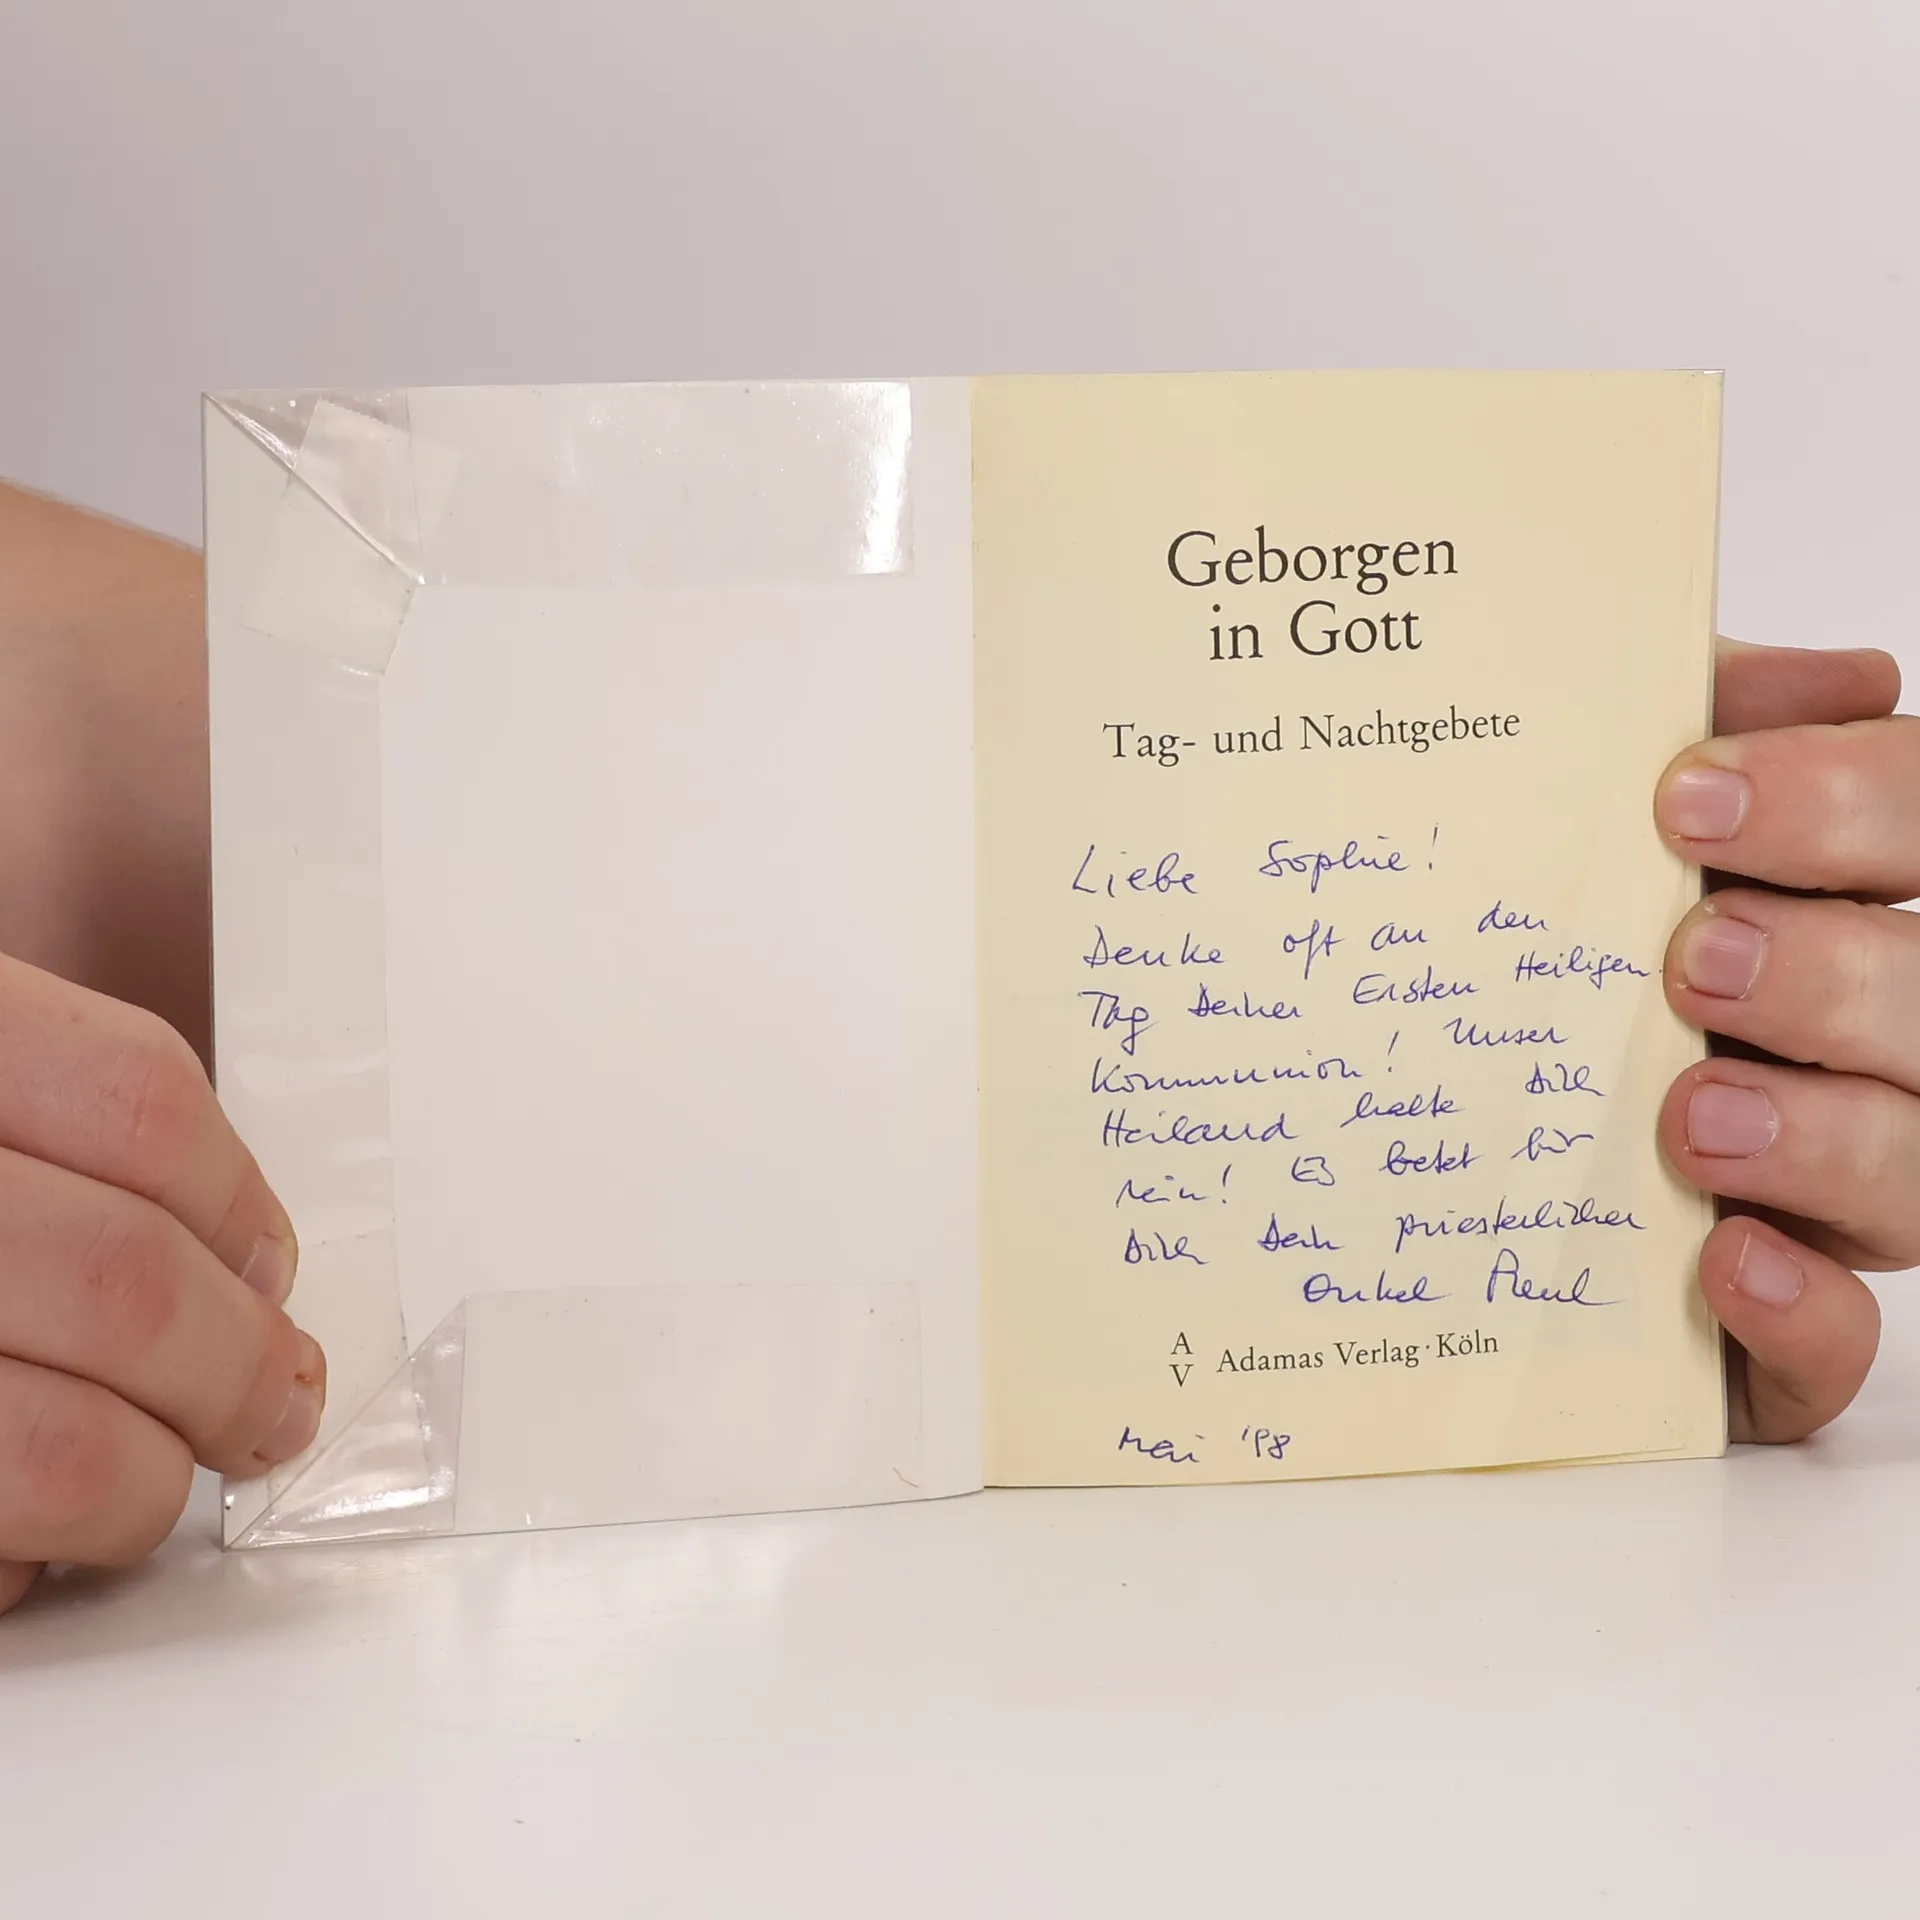 Geborgen
in Gott
Tag- und Nachtgebete
Liebe Sophie!
Denke oft an den
Tag Deiner Ersten Heiligen
Kommunion! Unser
Heiland halte Dich
rein! Es betet für
Dich Dein priesterlicher
Onkel Paul
A
V Adamas Verlag · Köln
Mai '98